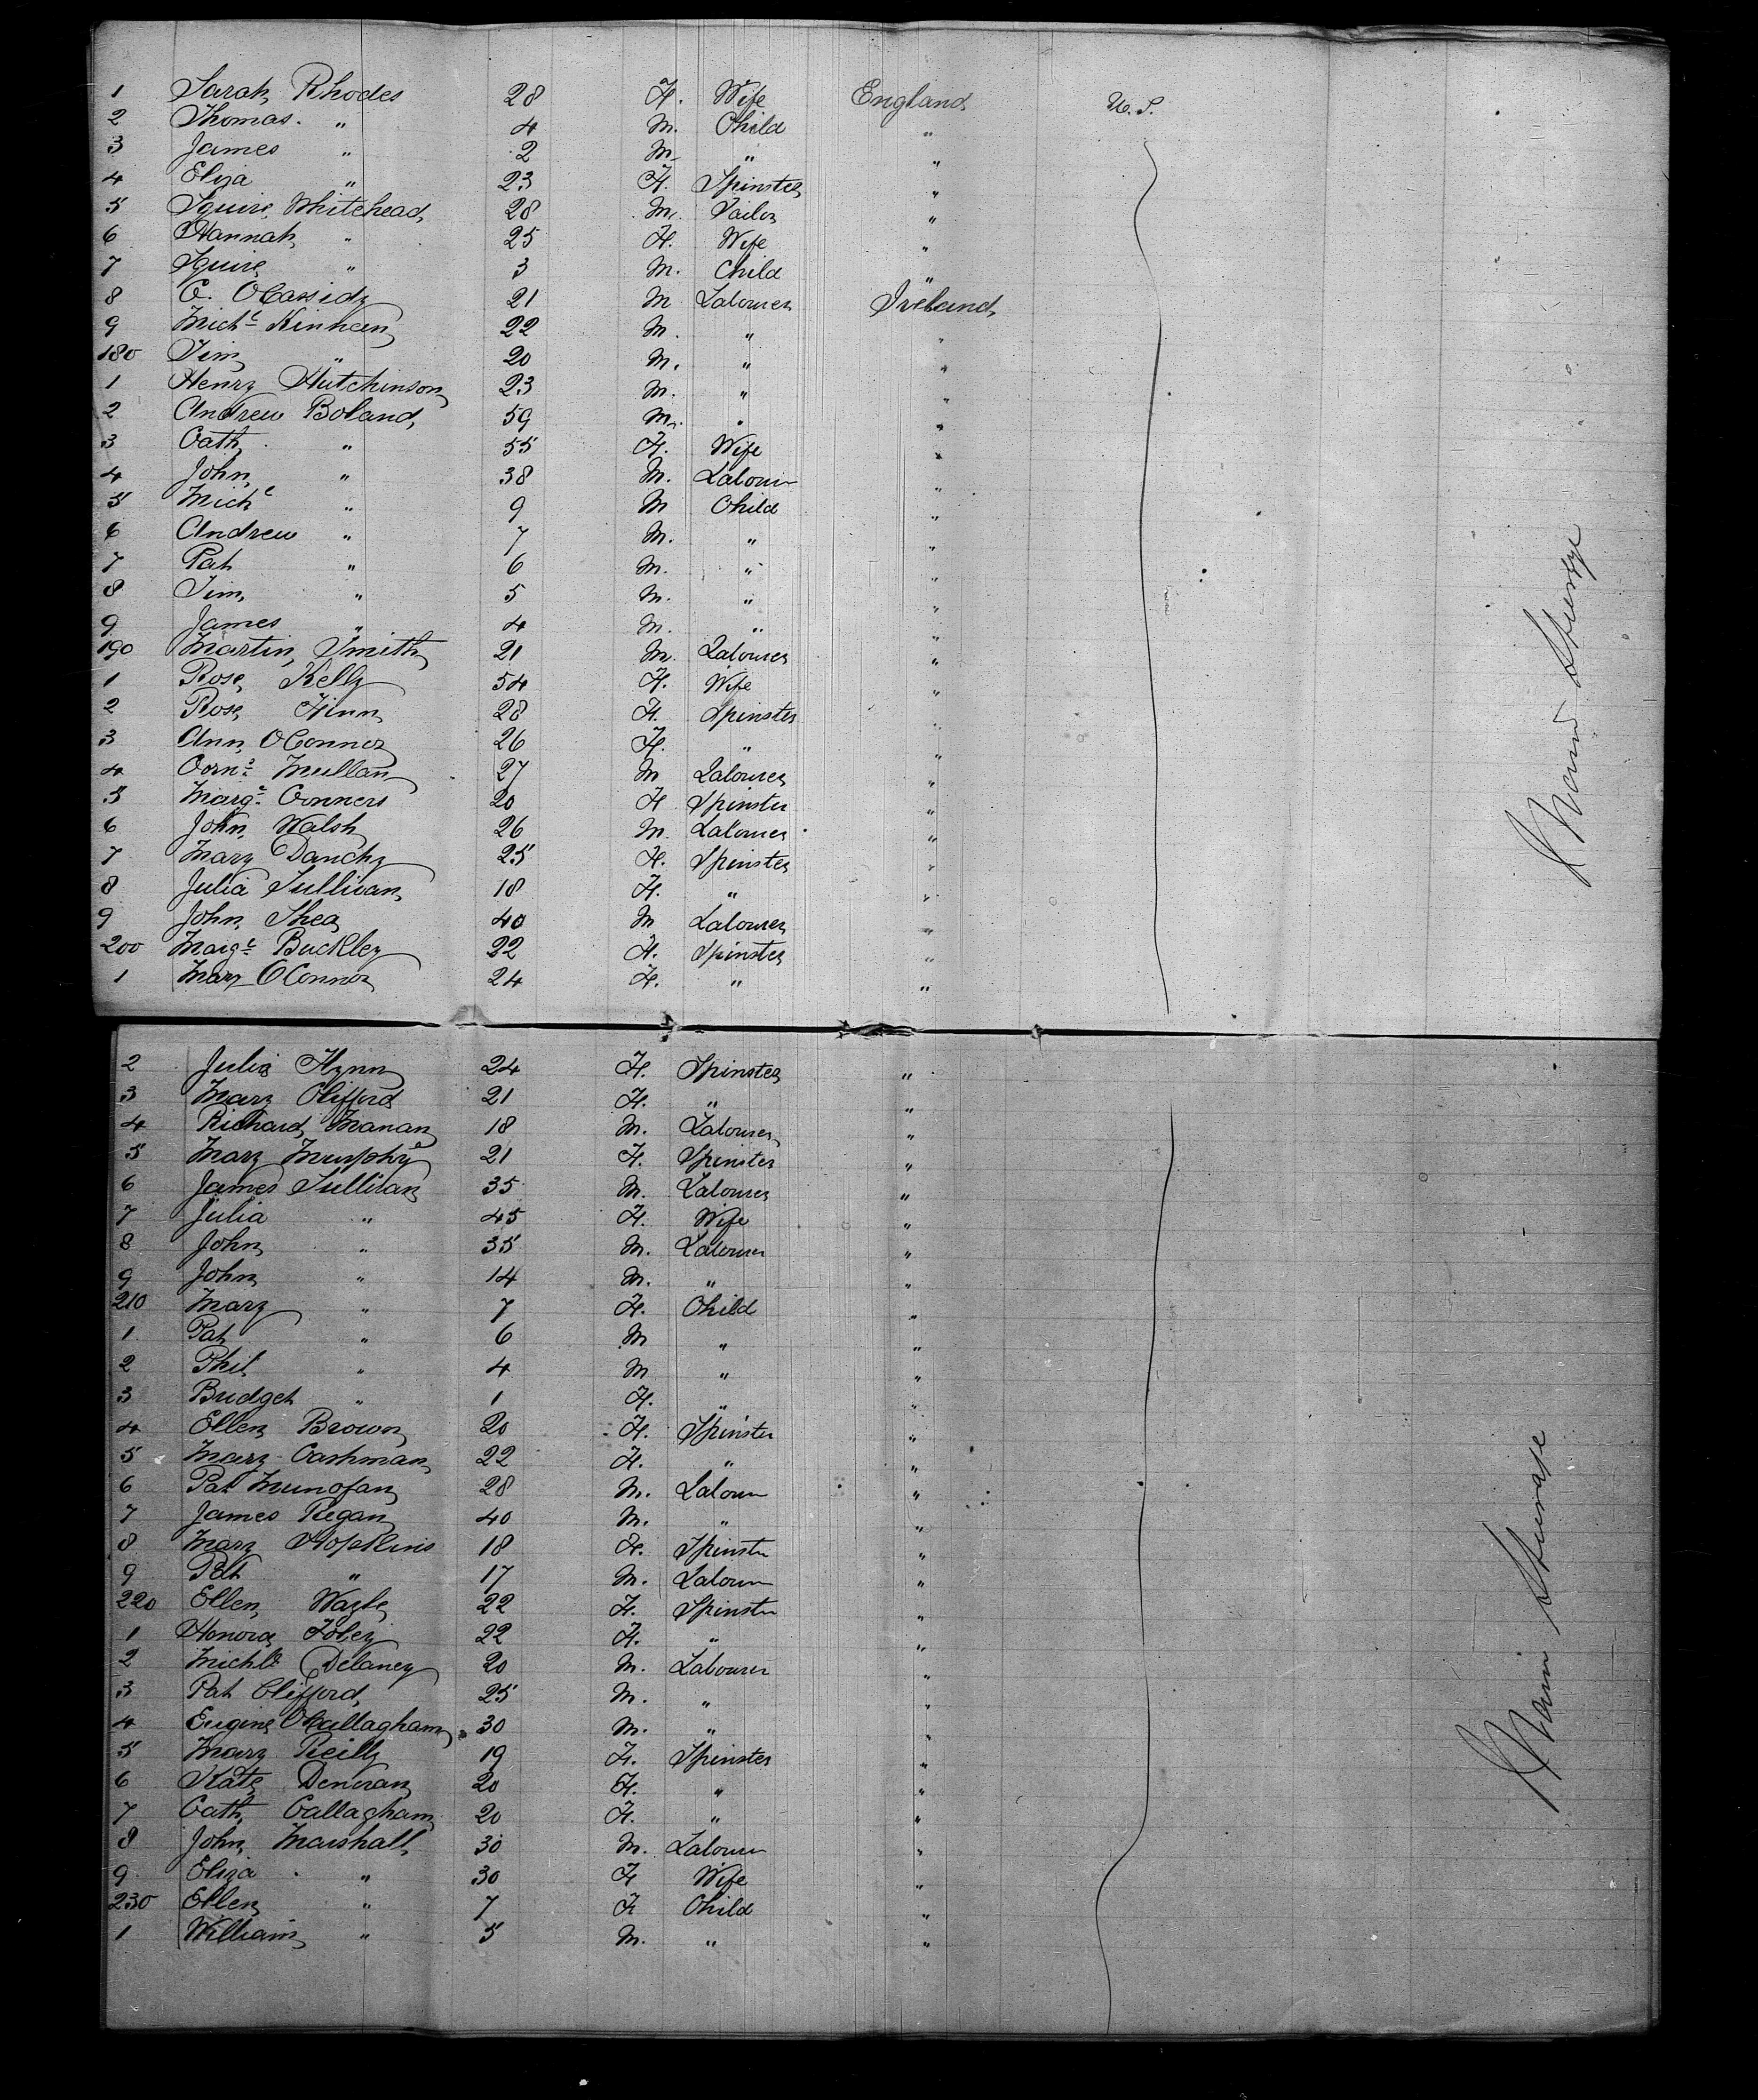 1 Sarah Rhodes 28 F. Wife England U.S.
2 Thomas. " 4 M. Child "
3 James " 2 M " "
4 Eliza " 23 F. Spinster "
5 Squire Whitehead 28 M. Tailor "
6 Hannah " 25 F. Wife "
7 Squire " 3 M. Child "
8 C. OCassidy 21 M Labourer Ireland
9 Michl Kinnean 22 M. " "
180 Tim " 20 M. " "
1 Henry Hutchinson 23 M. " "
2 Andrew Boland 59 M. " "
3 Cath " 55 F. Wife "
4 John " 38 M. Labourer "
5 Michl " 9 M Child "
6 Andrew " 7 M. " "
7 Pat " 6 M. " "
8 Tim " 5 M. " "
9 James " 4 M. " "
190 Martin Smith 21 M. Labourer "
1 Rose Kelly 54 F. Wife "
2 Rose Finn 28 F. Spinster "
3 Ann OConnor 26 F. " "
4 Corns Mullan 27 M Labourer "
5 Margt Conners 20 F Spinster "
6 John Walsh 26 M. Labourer "
7 Mary Danchy 25 F. Spinster "
8 Julia Sullivan 18 F. " "
9 John Shea 40 M Labourer "
200 Margt Buckley 22 F. Spinster "
1 Mary OConnor 24 F. " "
Main Steerage
2 Julia Flynn 24 F. Spinster "
3 Mary Clifford 21 F. " "
4 Richard Manan 18 M. Labourer "
5 Mary Murphy 21 F. Spinster "
6 James Sullivan 35 M. Labourer "
7 Julia " 45 F. Wife "
8 John " 35 M. Labourer "
9 John " 14 M. " "
210 Mary " 7 F. Child "
1 Pat " 6 M " "
2 Phil " 4 M " "
3 Bridget " 1 F. " "
4 Ellen Brown 20 F. Spinster "
5 Mary Cashman 22 F. " "
6 Pat 28 M. Labourer "
7 James Regan 40 M. " "
8 Mary Hopkins 18 F. Spinster "
9 Pat " 17 M. Labourer "
220 Ellen 22 F. Spinster "
1 Honora Foley 22 F. " "
2 Michl Delaney 20 M. Labourer "
3 Pat Clifford 25 M. " "
4 Eugine OCallagham 30 M. " "
5 Mary Reilly 19 F. Spinster "
6 Kate Denovan 20 F. " "
7 Cath Callagham 20 F. " "
8 John Marshall 30 M. Labourer "
9 Eliza " 30 F Wife "
230 Ellen " 7 F Child "
1 William " 5 M. " "
Main Steerage